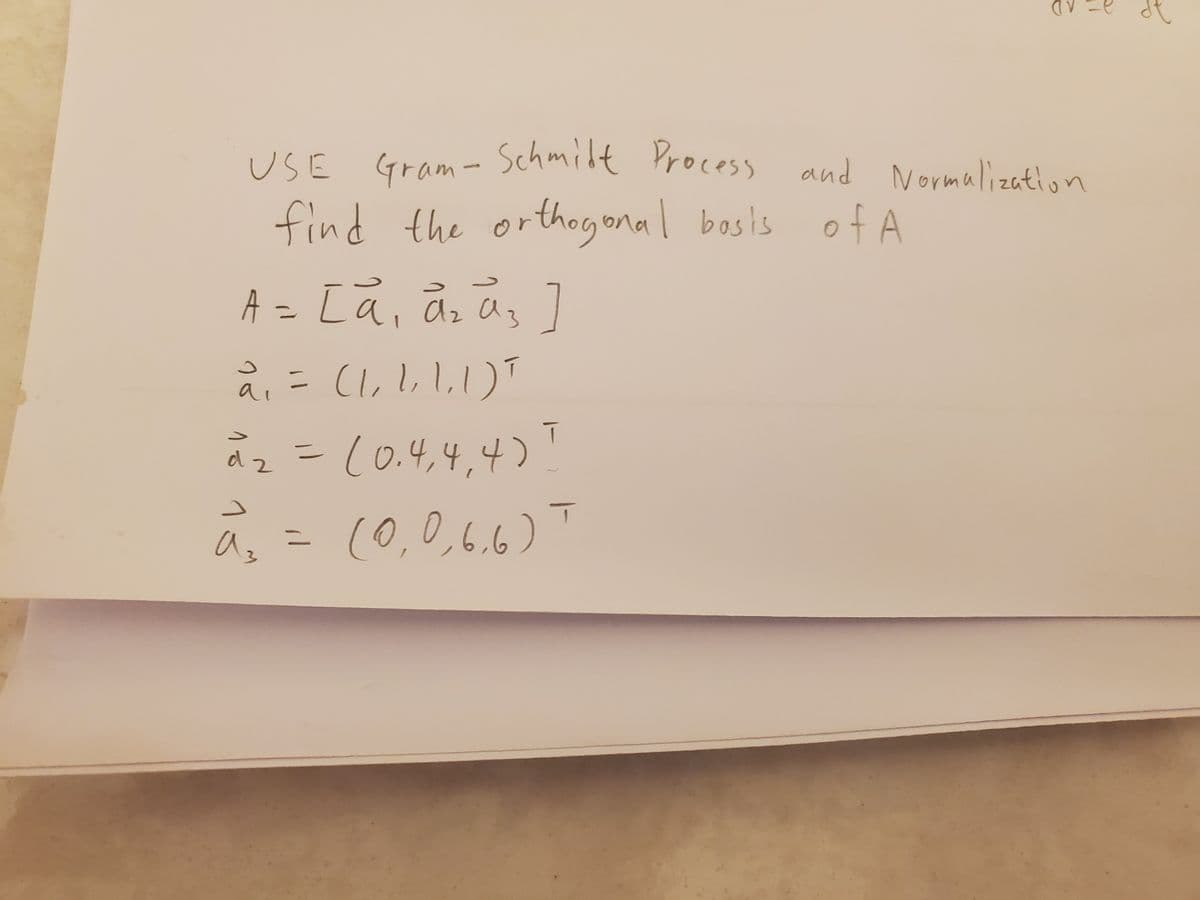 USE Gram-Schmidt Process and Normalization
find the orthogonal basis of A
A = [a⃗₁ a⃗₂ a⃗₃]
a⃗₁ = (1, 1, 1, 1)ᵀ
a⃗₂ = (0.4, 4, 4)ᵀ
a⃗₃ = (0, 0, 6, 6)ᵀ